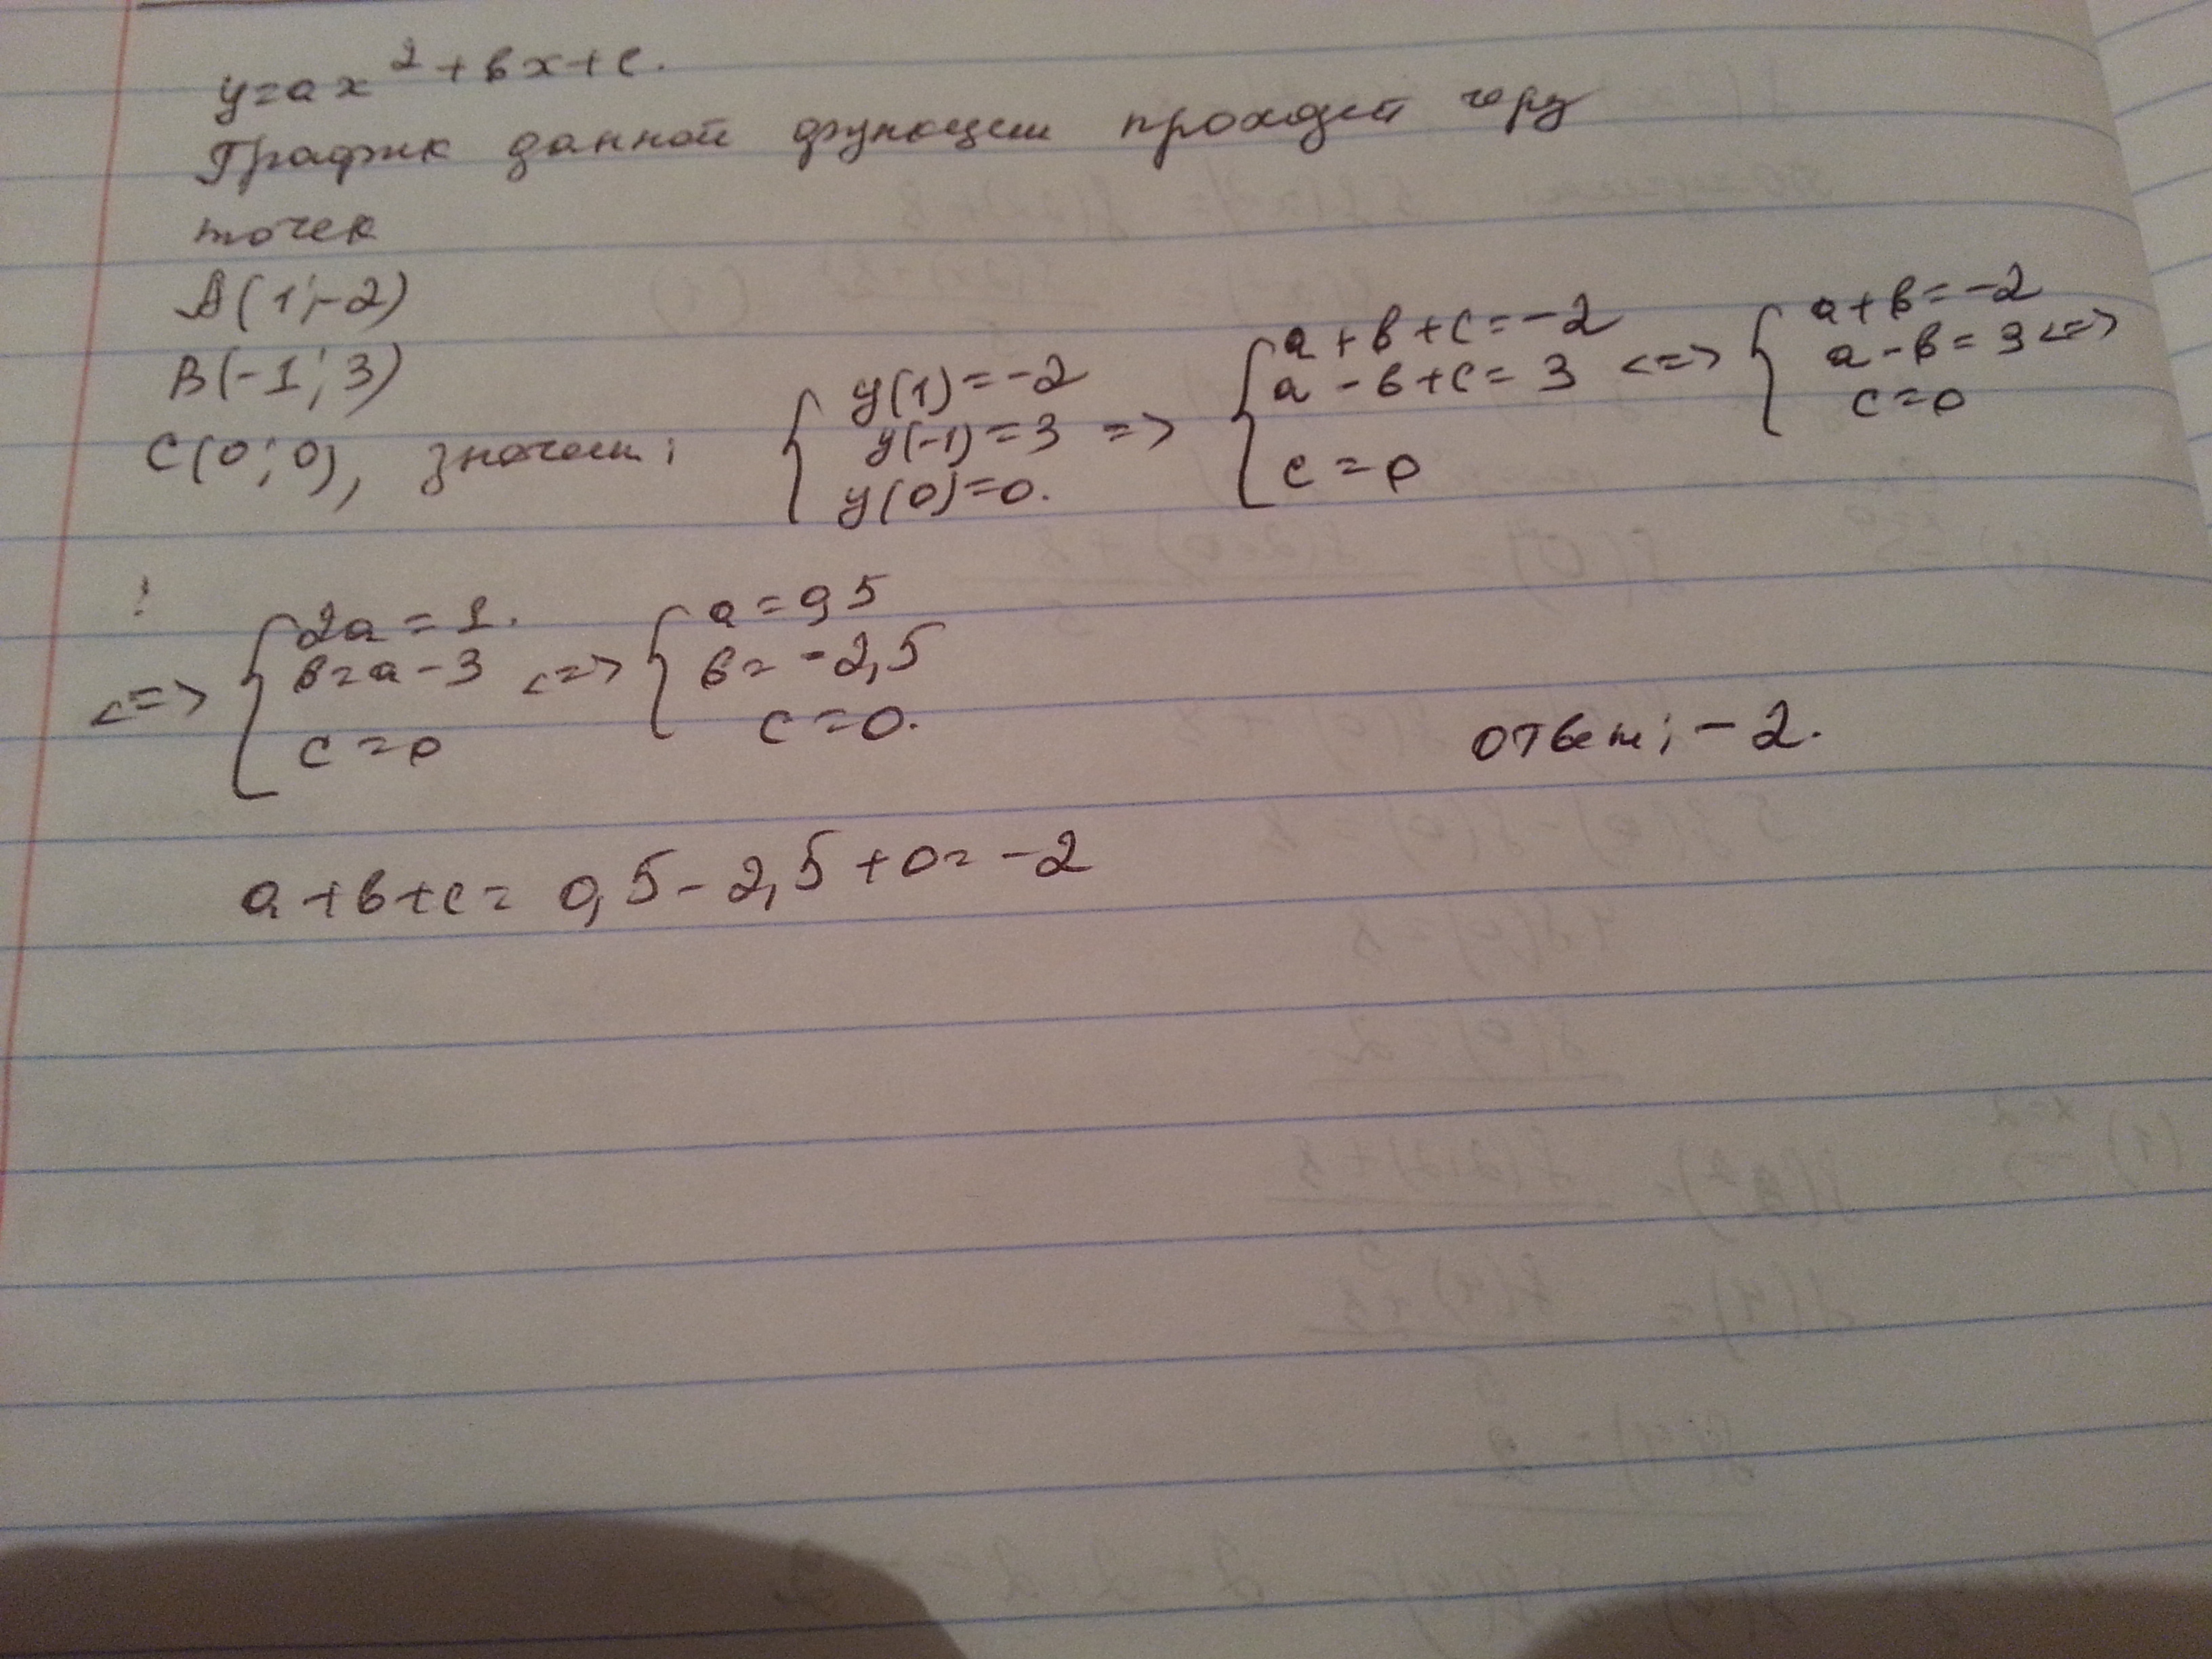 y=ax²+bx+c.
График данной функции проходит через
точек
A(1;-2)
B(-1;3)
C(0;0), значит; { y(1)=-2 y(-1)=3 y(0)=0. => { a+b+c=-2 a-b+c=3 c=0 <=> { a+b=-2 a-b=3 c=0 <=>
<=> { 2a=1. b=a-3 c=0 <=> { a=0,5 b=-2,5 c=0.
ответ; -2.
a+b+c= 0,5-2,5+0=-2